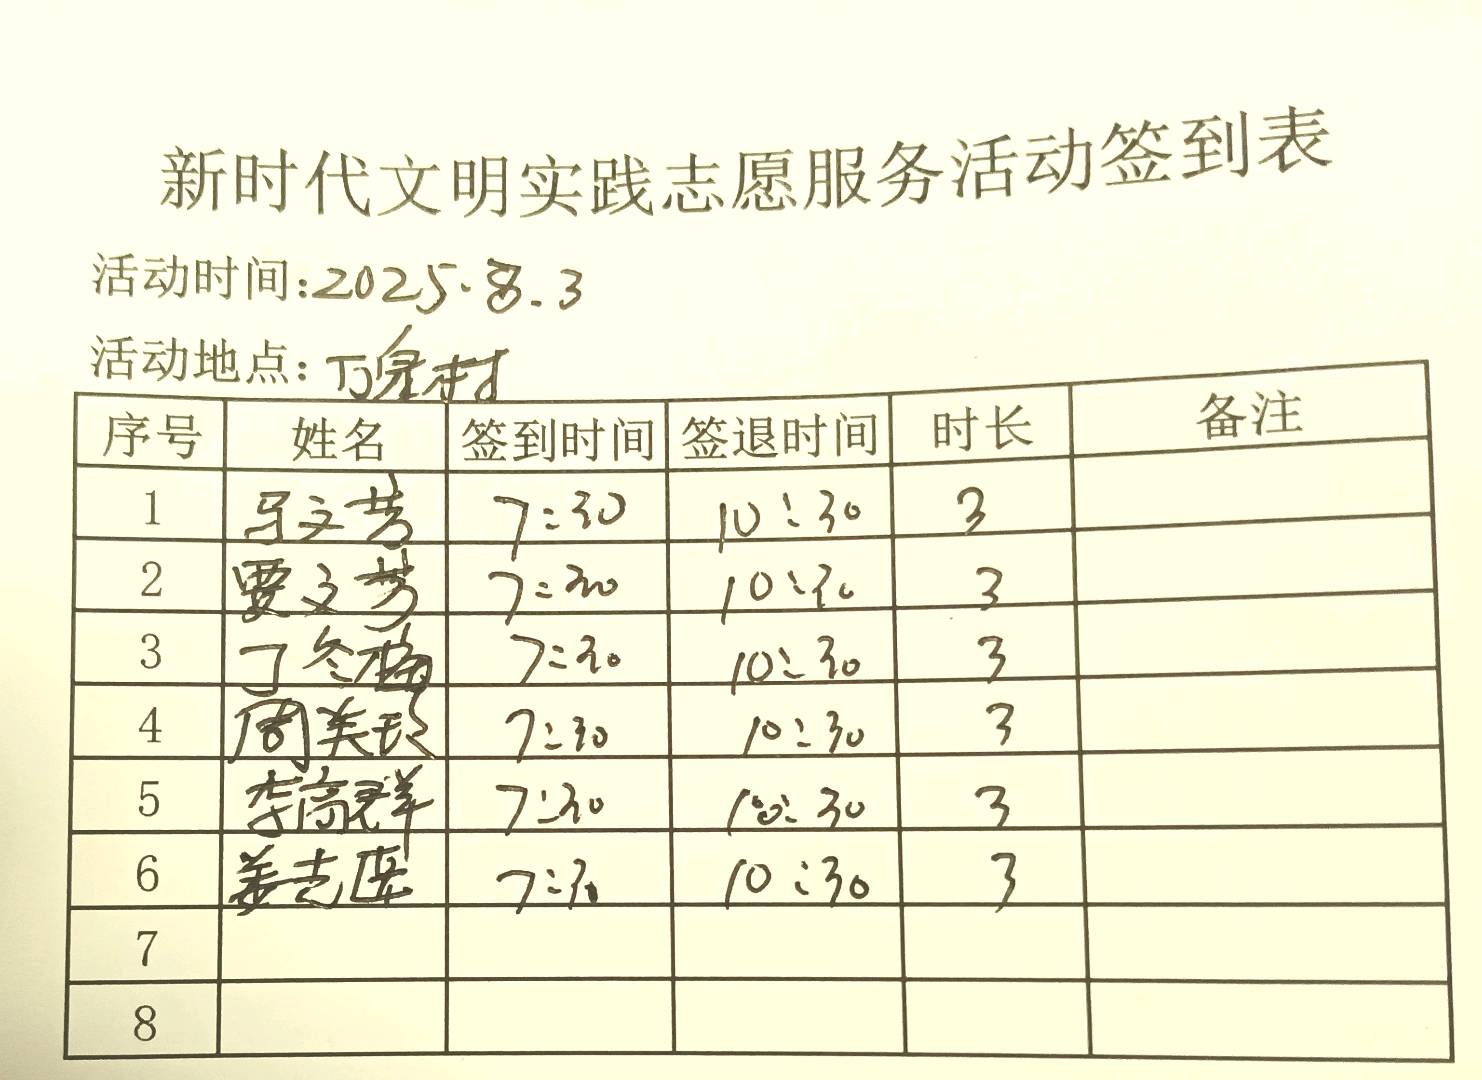 新时代文明实践志愿服务活动签到表
活动时间:2025.8.3
活动地点:万泉村
序号 姓名 签到时间 签退时间 时长 备注
1 马文芳 7:30 10:30 3
2 贾文芳 7:30 10:30 3
3 丁冬梅 7:30 10:30 3
4 周美珍 7:30 10:30 3
5 李高群 7:30 10:30 3
6 姜志 7:30 10:30 3
7
8